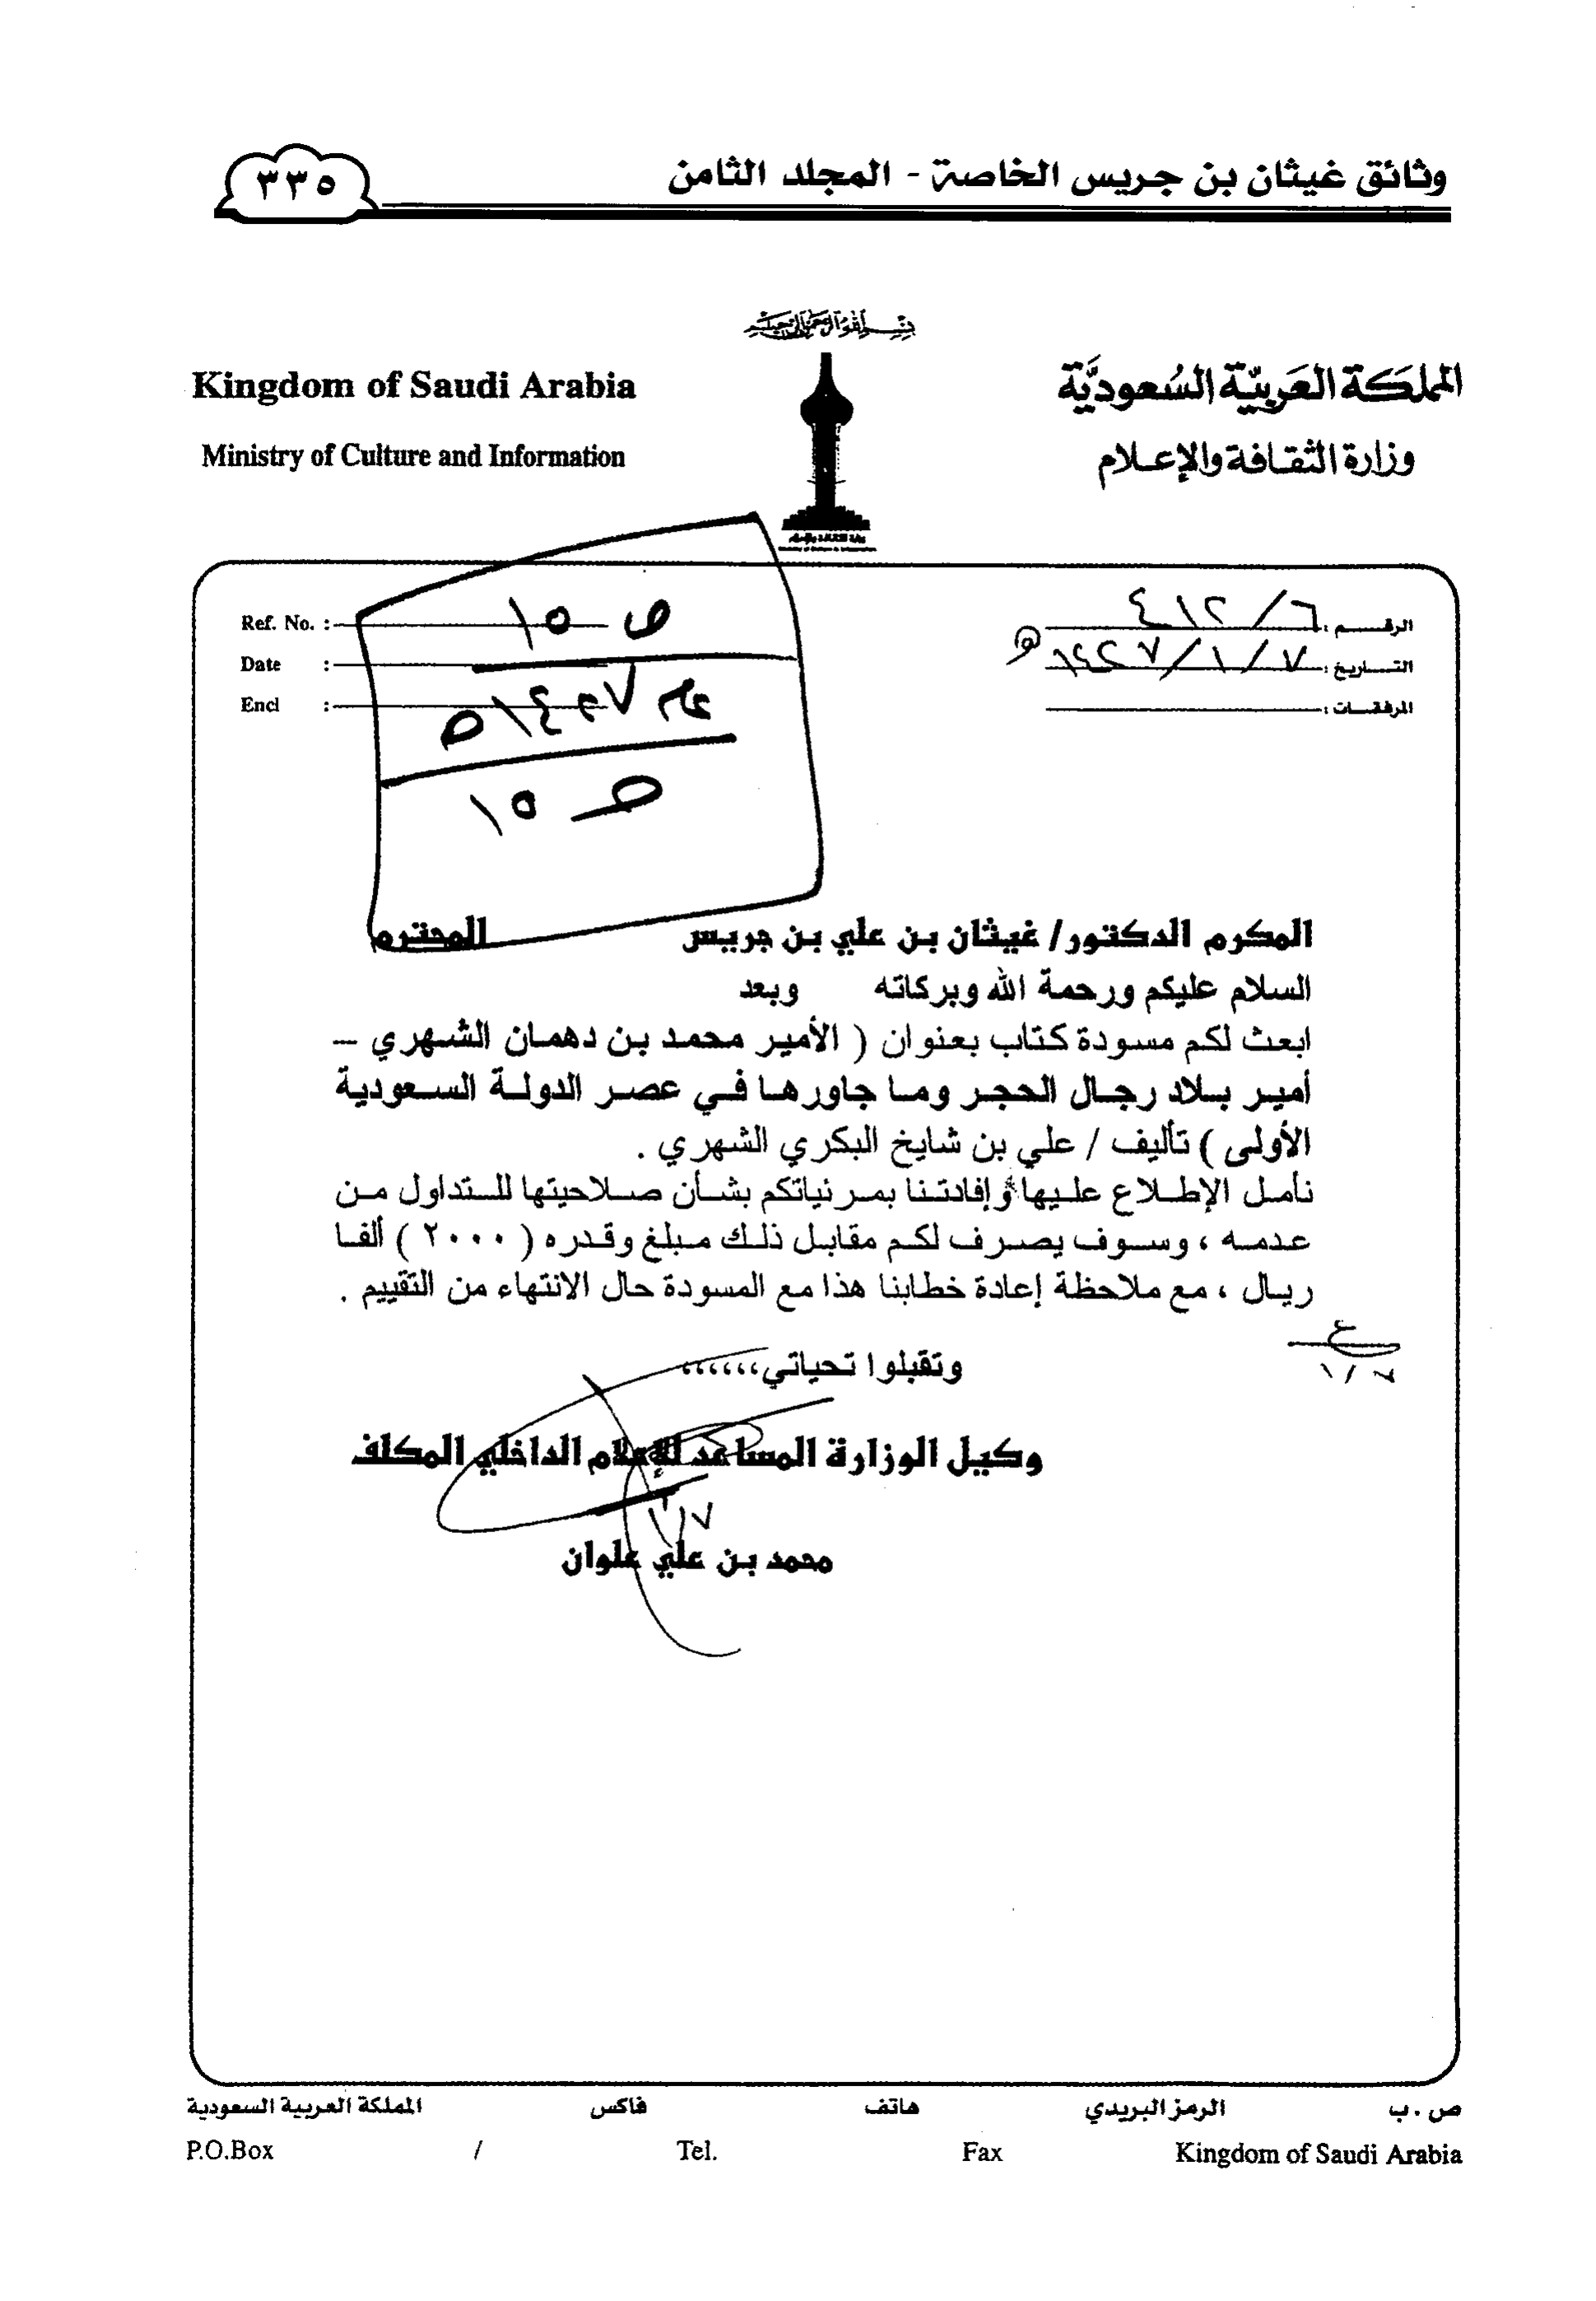 وثائق غيثان بن جريس الخاصة - المجلد الثامن
٣٣٥
بسم الله الرحمن الرحيم
المملكة العربية السعودية
وزارة الثقافة والإعلام
Kingdom of Saudi Arabia
Ministry of Culture and Information
وزارة الثقافة والإعلام
Ministry of Culture & Information
الرقـــــم : ٤١٢/٦
التـــاريخ : ١٤٢٧/١/٧ هـ
المرفقـــات :
Ref. No. :
Date :
Encl :
ص ١٥
عام ١٤٢٧هـ
ص ١٥
المكرم الدكتور/ غيثان بن علي بن جريس المحترم
السلام عليكم ورحمة الله وبركاته وبعد
ابعث لكم مسودة كتاب بعنوان ( الأمير محمد بن دهمان الشهري –
أمير بلاد رجال الحجر وما جاورها في عصر الدولة السعودية
الأولى ) تأليف / علي بن شايخ البكري الشهري .
نأمل الإطلاع عليها وإفادتنا بمرئياتكم بشأن صلاحيتها للتداول من
عدمه ، وسوف يصرف لكم مقابل ذلك مبلغ وقدره ( ٢٠٠٠ ) ألفا
ريال ، مع ملاحظة إعادة خطابنا هذا مع المسودة حال الانتهاء من التقييم .
وتقبلوا تحياتي،،،،،،
وكيل الوزارة المساعد للإعلام الداخلي المكلف
١/٧
محمد بن علي علوان
ص . ب الرمز البريدي هاتف فاكس المملكة العربية السعودية
P.O.Box / Tel. Fax Kingdom of Saudi Arabia